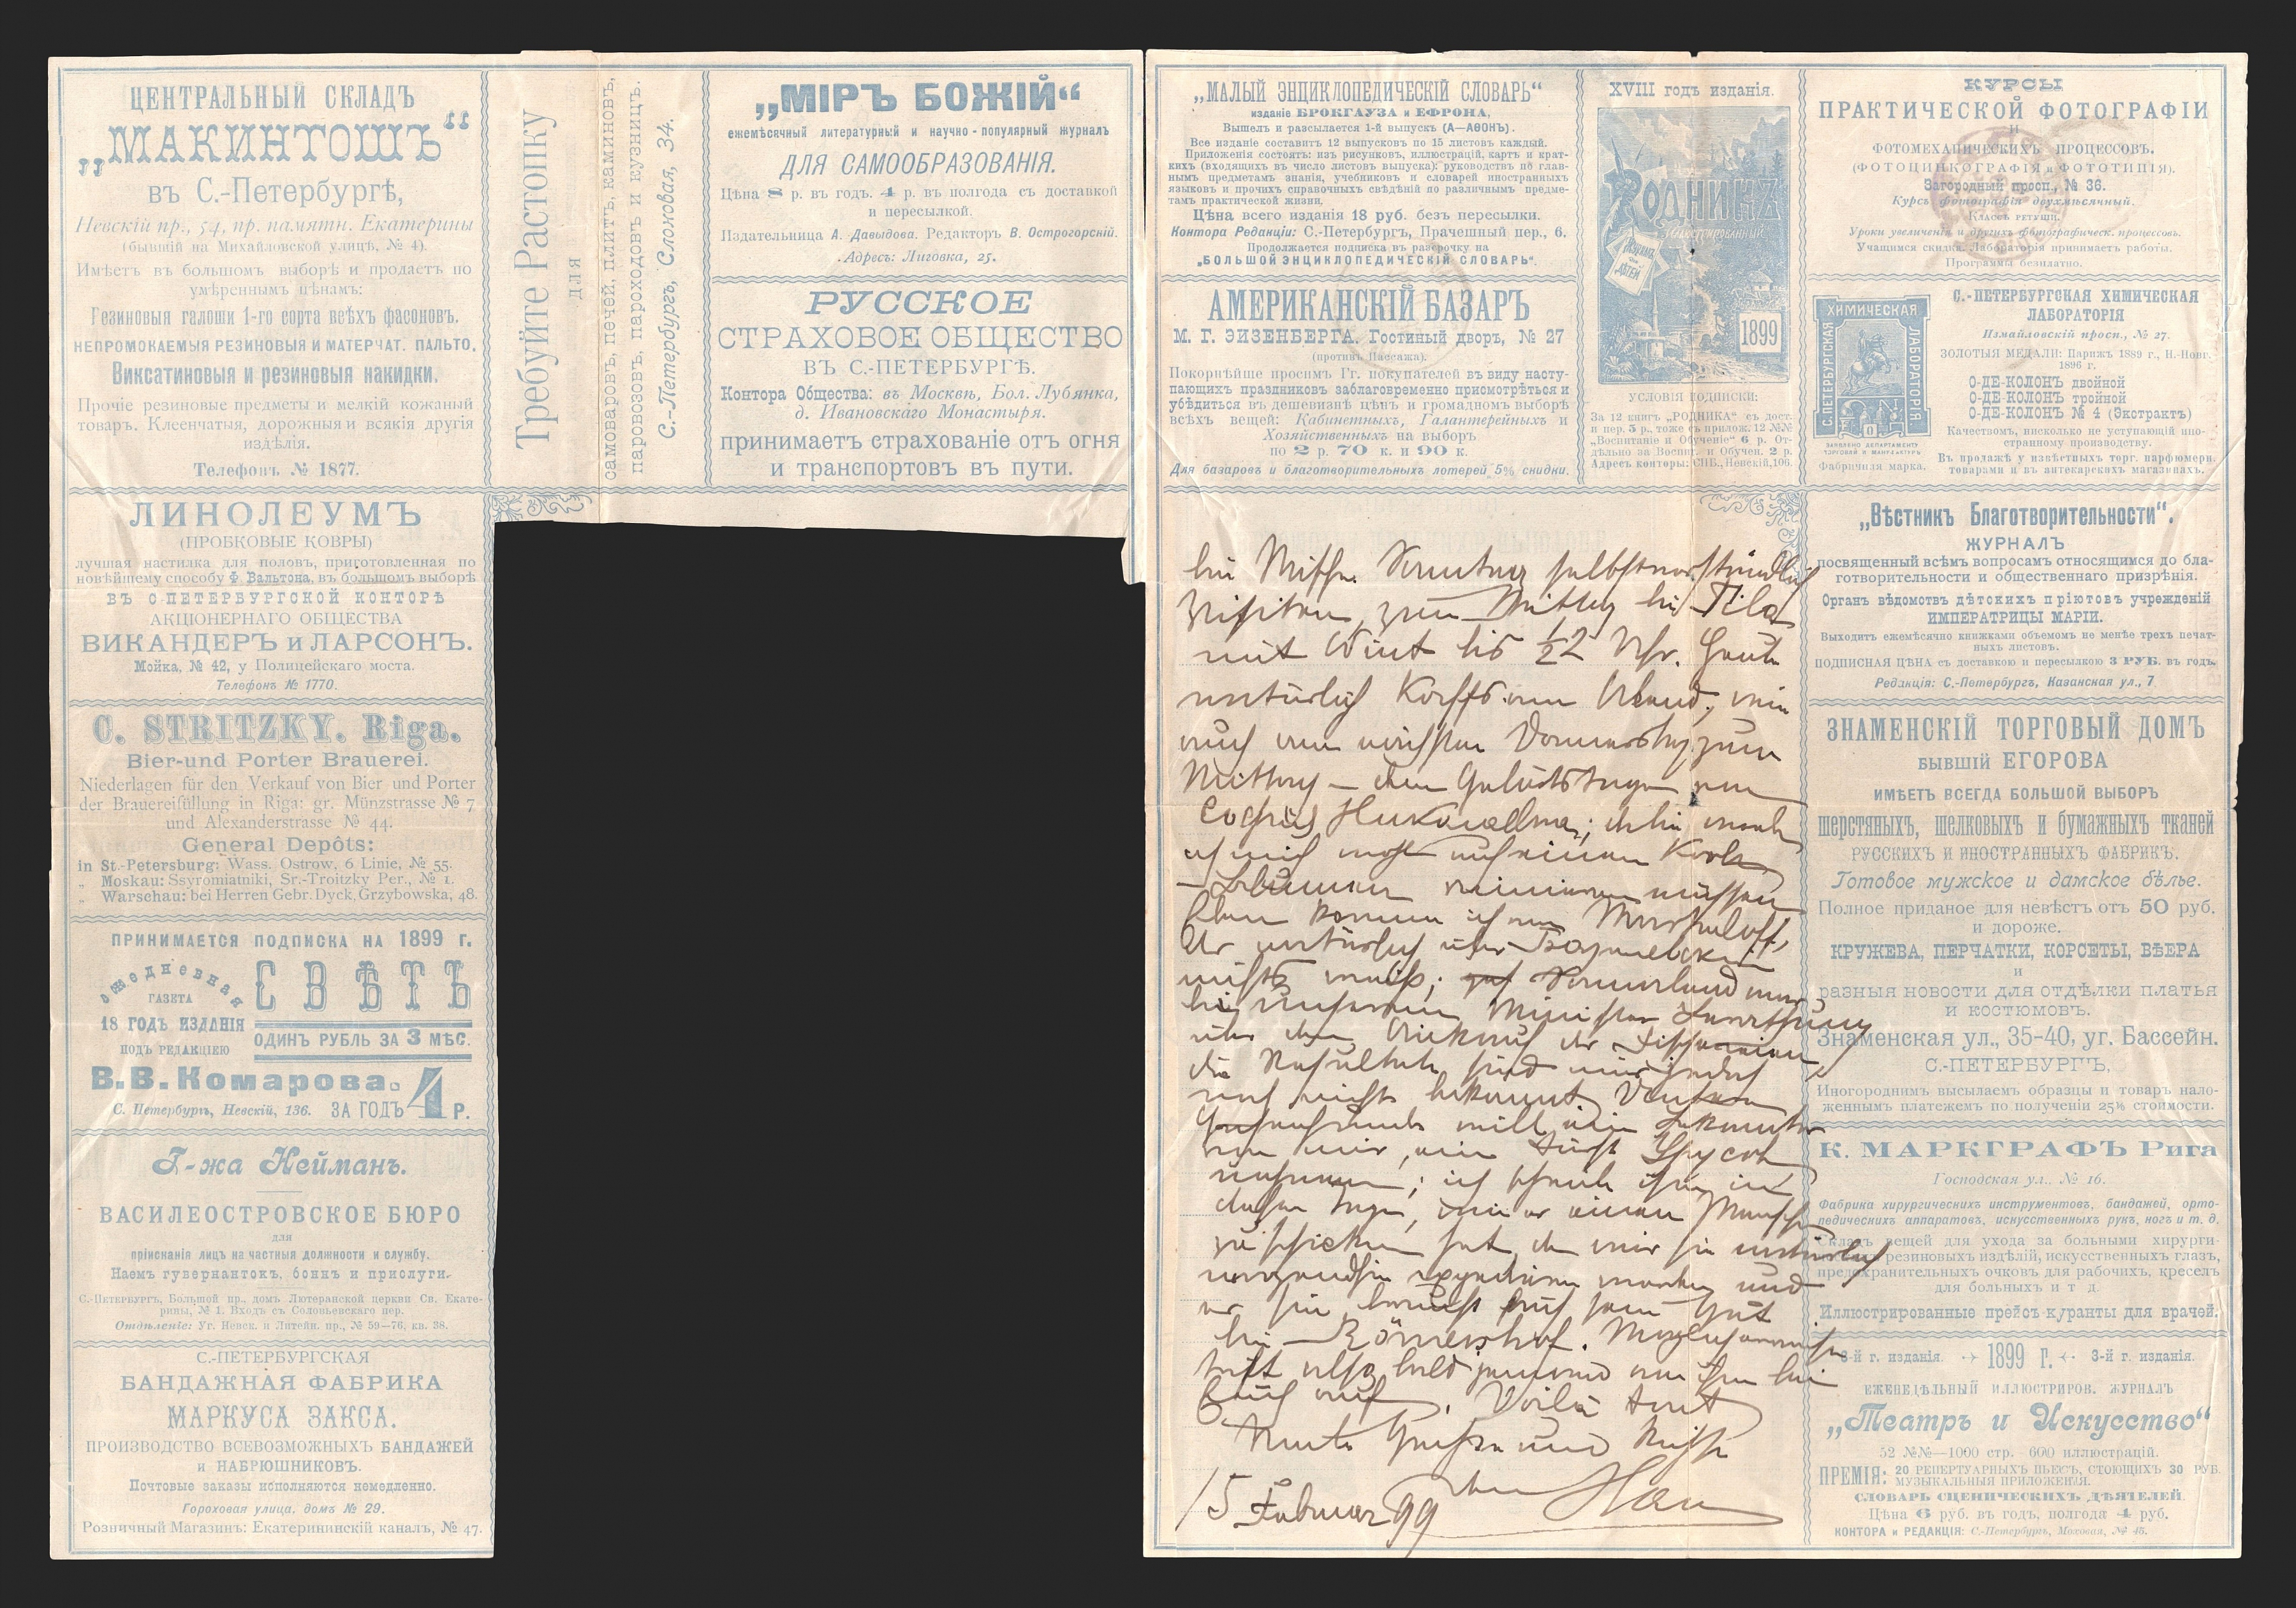 ЦЕНТРАЛЬНЫЙ СКЛАДЪ
„МАКИНТОШЪ“
въ С.-Петербургѣ,
Невскій пр., 54, пр. памятн. Екатерины
(бывшій на Михайловской улицѣ, № 4).
Имѣетъ въ большомъ выборѣ и продаетъ по
умѣреннымъ цѣнамъ:
Резиновыя галоши 1-го сорта всѣхъ фасоновъ.
НЕПРОМОКАЕМЫЯ РЕЗИНОВЫЯ И МАТЕРЧАТ. ПАЛЬТО,
Виксатиновыя и резиновыя накидки.
Прочіе резиновые предметы и мелкій кожаный
товаръ. Клеенчатыя, дорожныя и всякія другія
издѣлія.
Телефонъ № 1877.
Требуйте Растопку
для
самоваровъ, печей, плитъ, каминовъ,
паровозовъ, пароходовъ и кузницъ.
С.-Петербургъ, Слоновая, 34.
„МІРЪ БОЖІЙ“
ежемѣсячный литературный и научно-популярный журналъ
ДЛЯ САМООБРАЗОВАНІЯ.
Цѣна 8 р. въ годъ. 4 р. въ полгода съ доставкой
и пересылкой.
Издательница А. Давыдова. Редакторъ В. Острогорскій.
Адресъ: Лиговка, 25.
РУССКОЕ
СТРАХОВОЕ ОБЩЕСТВО
ВЪ С.-ПЕТЕРБУРГѢ.
Контора Общества: въ Москвѣ, Бол. Лубянка,
д. Ивановскаго Монастыря.
принимаетъ страхованіе отъ огня
и транспортовъ въ пути.
ЛИНОЛЕУМЪ
(ПРОБКОВЫЕ КОВРЫ)
лучшая настилка для половъ, приготовленная по
новѣйшему способу Ф. Вальтона, въ большомъ выборѣ
ВЪ С-ПЕТЕРБУРГСКОЙ КОНТОРѢ
АКЦІОНЕРНАГО ОБЩЕСТВА
ВИКАНДЕРЪ и ЛАРСОНЪ.
Мойка, № 42, у Полицейскаго моста.
Телефонъ № 1770.
C. STRITZKY. Riga.
Bier-und Porter Brauerei.
Niederlagen für den Verkauf von Bier und Porter
der Brauereifüllung in Riga: gr. Münzstrasse № 7
und Alexanderstrasse № 44.
General Depôts:
in St.-Petersburg: Wass. Ostrow, 6 Linie, № 55.
„ Moskau: Ssyromiatniki, Sr.-Troitzky Per., № 1.
„ Warschau: bei Herren Gebr. Dyck, Grzybowska, 48.
ПРИНИМАЕТСЯ ПОДПИСКА НА 1899 г.
ежедневная
ГАЗЕТА
СВѢТЪ
18 ГОДЪ ИЗДАНІЯ
ПОДЪ РЕДАКЦІЕЮ
ОДИНЪ РУБЛЬ ЗА 3 МѢС.
В. В. Комарова.
С. Петербургъ, Невскій, 136. ЗА ГОДЪ 4 Р.
Г-жа Нейманъ.
ВАСИЛЕОСТРОВСКОЕ БЮРО
для
пріисканія лицъ на частныя должности и службу.
Наемъ гувернантокъ, боннъ и прислуги.
С.-Петербургъ, Большой пр., домъ Лютеранской церкви Св. Екате-
рины, № 1. Входъ съ Соловьевскаго пер.
Отдѣленіе: Уг. Невск. и Литейн. пр., № 59—76, кв. 38.
С.-ПЕТЕРБУРГСКАЯ
БАНДАЖНАЯ ФАБРИКА
МАРКУСА ЗАКСА.
ПРОИЗВОДСТВО ВСЕВОЗМОЖНЫХЪ БАНДАЖЕЙ
и НАБРЮШНИКОВЪ.
Почтовые заказы исполняются немедленно.
Гороховая улица, домъ № 29.
Розничный Магазинъ: Екатерининскій каналъ, № 47.
„МАЛЫЙ ЭНЦИКЛОПЕДИЧЕСКІЙ СЛОВАРЬ“
изданіе БРОКГАУЗА и ЕФРОНА,
Вышелъ и разсылается 1-й выпускъ (А—АѲОНЪ).
Все изданіе составитъ 12 выпусковъ по 15 листовъ каждый.
Приложенія состоятъ: изъ рисунковъ, иллюстрацій, картъ и крат-
кихъ (входящихъ въ число листовъ выпуска): руководствъ по глав-
нымъ предметамъ знанія, учебниковъ и словарей иностранныхъ
языковъ и прочихъ справочныхъ свѣдѣній по различнымъ предме-
тамъ практической жизни,
Цѣна всего изданія 18 руб. безъ пересылки.
Контора Редакціи: С.-Петербургъ, Прачешный пер., 6.
Продолжается подписка въ разсрочку на
„БОЛЬШОЙ ЭНЦИКЛОПЕДИЧЕСКІЙ СЛОВАРЬ“.
АМЕРИКАНСКІЙ БАЗАРЪ
М. Г. ЭИЗЕНБЕРГА. Гостиный дворъ, № 27
(противъ Пассажа).
Покорнѣйше просимъ Гг. покупателей въ виду насту-
пающихъ праздниковъ заблаговременно присмотрѣться и
убѣдиться въ дешевизнѣ цѣнъ и громадномъ выборѣ
всѣхъ вещей: Кабинетныхъ, Галантерейныхъ и
Хозяйственныхъ на выборъ
по 2 р. 70 к. и 90 к.
Для базаровъ и благотворительныхъ лотерей 5% скидки.
XVIII годъ изданія.
РОДНИКЪ
ИЛЛЮСТРИРОВАННЫЙ
ЖУРНАЛЪ
для
ДѢТЕЙ
1899
УСЛОВІЯ ПОДПИСКИ:
За 12 книгъ „РОДНИКА“ съ дост.
и пер. 5 р., тоже съ прилож. 12 №№
„Воспитаніе и Обученіе“ 6 р. От-
дѣльно за Воспит. и Обучен. 2 р.
Адресъ конторы: СПБ., Невскій, 106.
КУРСЫ
ПРАКТИЧЕСКОЙ ФОТОГРАФІИ
И
ФОТОМЕХАНИЧЕСКИХЪ ПРОЦЕССОВЪ.
(ФОТОЦИНКОГРАФІЯ и ФОТОТИПІЯ).
Загородный просп., № 36.
Курсъ фотографіи двухмѣсячный.
Классъ ретуши.
Уроки увеличенія и другихъ фотографическ. процессовъ.
Учащимся скидка. Лабораторія принимаетъ работы.
Программы безплатно.
ХИМИЧЕСКАЯ
С.-ПЕТЕРБУРГСКАЯ
ЛАБОРАТОРІЯ
ЗАЯВЛЕНО ДЕПАРТАМЕНТУ
ТОРГОВЛИ И МАНУФАКТУРЪ
Фабричная марка.
С.-ПЕТЕРБУРГСКАЯ ХИМИЧЕСКАЯ
ЛАБОРАТОРІЯ
Измайловскій просп., № 27.
ЗОЛОТЫЯ МЕДАЛИ: Парижъ 1889 г., Н.-Новг.
1896 г.
О-ДЕ-КОЛОНЪ двойной
О-ДЕ-КОЛОНЪ тройной
О-ДЕ-КОЛОНЪ № 4 (Экстрактъ)
Качествомъ, нисколько не уступающій ино-
странному производству.
Въ продажѣ у извѣстныхъ торг. парфюмерн.
товарами и въ аптекарскихъ магазинахъ.
bei Misses. Sonntag selbstverständlich
Visiten, zum Mittag bei
mit Wint bis ½2 Uhr. Heute
natürlich Korffs am Abend, wie
auch am nächsten Donnerstag zum
Mittag — dem Geburtstage von
Софья Николаевна;
ich mich wohl nach einem
müssen
komme ich
natürlich über
nichts weiss; Sonnabend war
bei unserem Minister Berathung
über den Ankauf der
die Resultate sind mir jedoch
noch nicht bekannt.
will ein Bekannter
von mir, ein Fürst
nehmen; ich schreibe ihm in
diesen Tagen, wie er einen Menschen
zu schicken hat, dem wir sie natürlich
expedieren werden und
er sie braucht auf sein Gut
bei Römershof. Möglicherweise
trifft also bald jemand von ihm bei
Euch auf. Voilà tout
Grüsse und Küsse
15 Februar 99
„Вѣстникъ Благотворительности“.
ЖУРНАЛЪ
посвященный всѣмъ вопросамъ относящимся до бла-
готворительности и общественнаго призрѣнія.
Органъ вѣдомствъ дѣтскихъ пріютовъ учрежденій
ИМПЕРАТРИЦЫ МАРІИ.
Выходитъ ежемѣсячно книжками объемомъ не менѣе трехъ печат-
ныхъ листовъ.
ПОДПИСНАЯ ЦѢНА съ доставкою и пересылкою 3 РУБ. въ годъ.
Редакція: С.-Петербургъ, Казанская ул., 7
ЗНАМЕНСКІЙ ТОРГОВЫЙ ДОМЪ
БЫВШІЙ ЕГОРОВА
ИМѢЕТЪ ВСЕГДА БОЛЬШОЙ ВЫБОРЪ
шерстяныхъ, шелковыхъ и бумажныхъ тканей
РУССКИХЪ И ИНОСТРАННЫХЪ ФАБРИКЪ.
Готовое мужское и дамское бѣлье.
Полное приданое для невѣстъ отъ 50 руб.
и дороже.
КРУЖЕВА, ПЕРЧАТКИ, КОРСЕТЫ, ВѢЕРА
и
разныя новости для отдѣлки платья
и костюмовъ.
Знаменская ул., 35-40, уг. Бассейн.
С.-ПЕТЕРБУРГЪ,
Иногороднимъ высылаемъ образцы и товаръ нало-
женнымъ платежемъ по полученіи 25% стоимости.
К. МАРКГРАФЪ Рига
Господская ул., № 16.
Фабрика хирургическихъ инструментовъ, бандажей, орто-
педическихъ аппаратовъ, искусственныхъ рукъ, ногъ и т. д.
Складъ вещей для ухода за больными хирурги-
резиновыхъ издѣлій, искусственныхъ глазъ,
предохранительныхъ очковъ для рабочихъ, креселъ
для больныхъ и т д.
Иллюстрированные прейсъ-куранты для врачей.
3-й г. изданія. 1899 Г. 3-й г. изданія.
ЕЖЕНЕДѢЛЬНЫЙ ИЛЛЮСТРИРОВ. ЖУРНАЛЪ
„Театръ и Искусство“
52 №№—1000 стр. 600 иллюстрацій.
ПРЕМІЯ: 20 РЕПЕРТУАРНЫХЪ ПЬЕСЪ, СТОЮЩИХЪ 30 РУБ.
МУЗЫКАЛЬНЫЯ ПРИЛОЖЕНІЯ.
СЛОВАРЬ СЦЕНИЧЕСКИХЪ ДѢЯТЕЛЕЙ
Цѣна 6 руб. въ годъ, полгода 4 руб.
КОНТОРА и РЕДАКЦІЯ: С.-Петербургъ, Моховая, № 45.